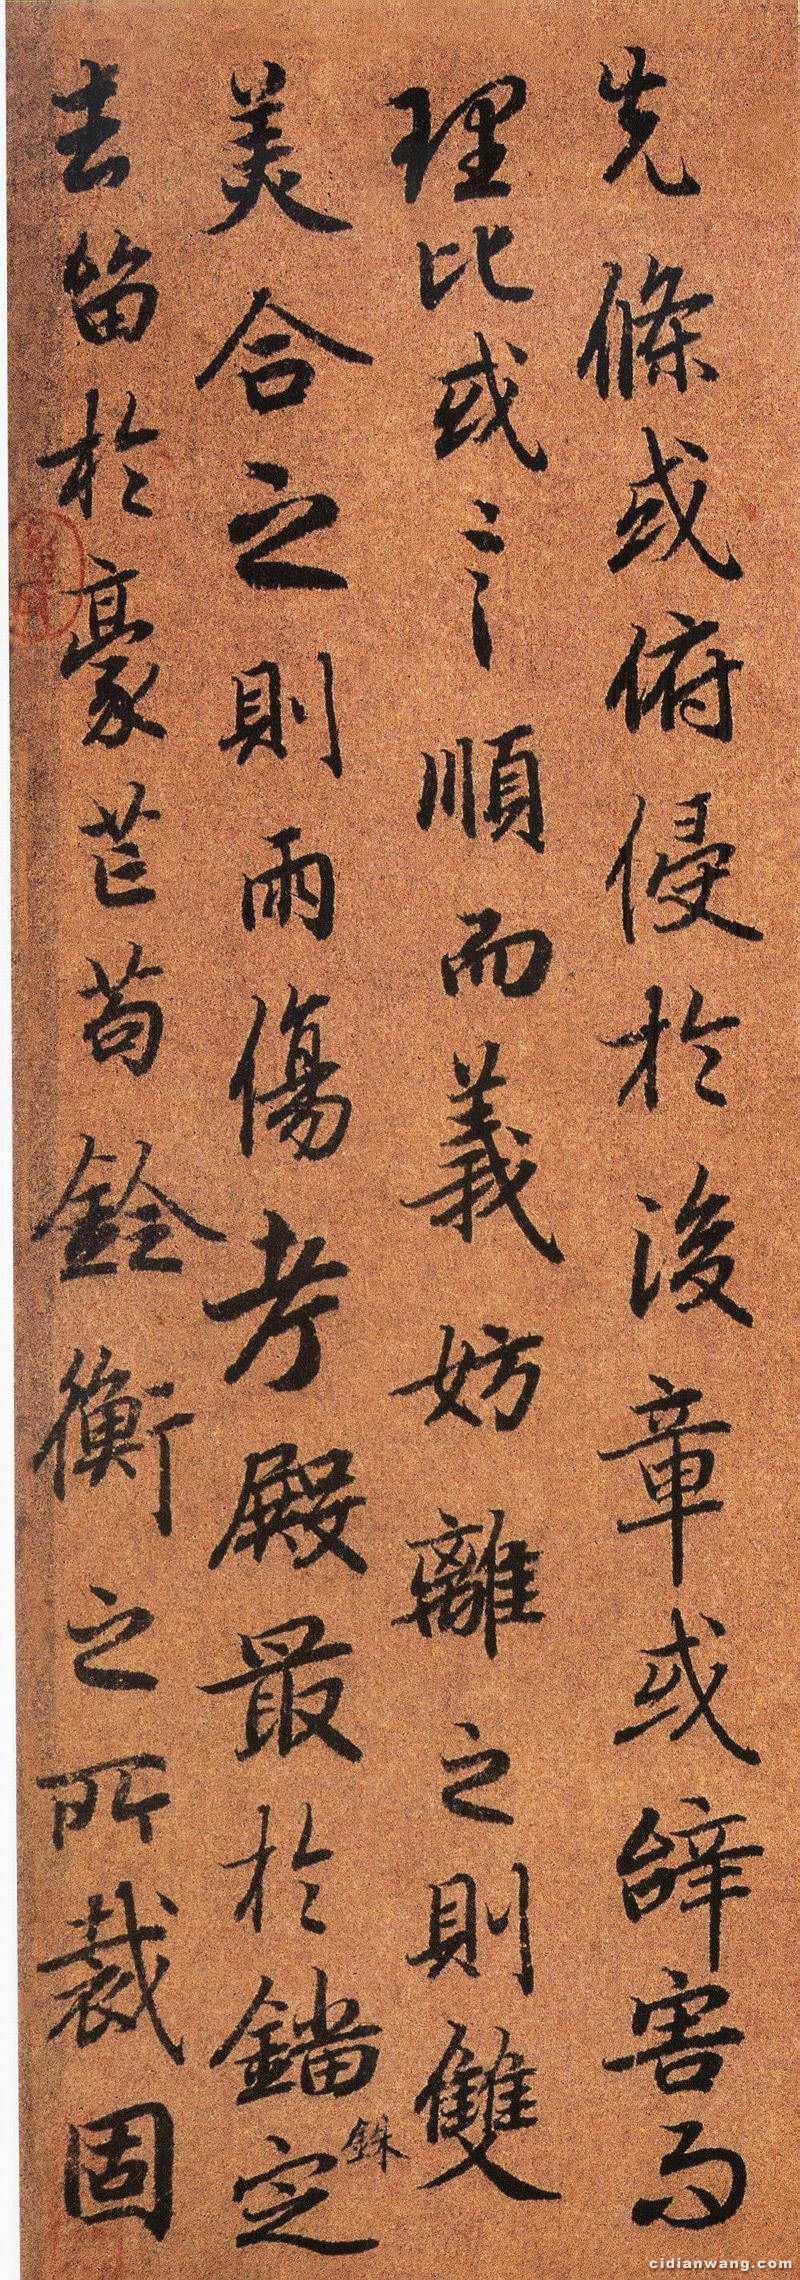 先條或俯侵於後章或辭害而
理比或言順而義妨離之則雙
美合之則兩傷考殿最於錙銖定
去留於豪芒苟銓衡之所裁固
cidianwang.com